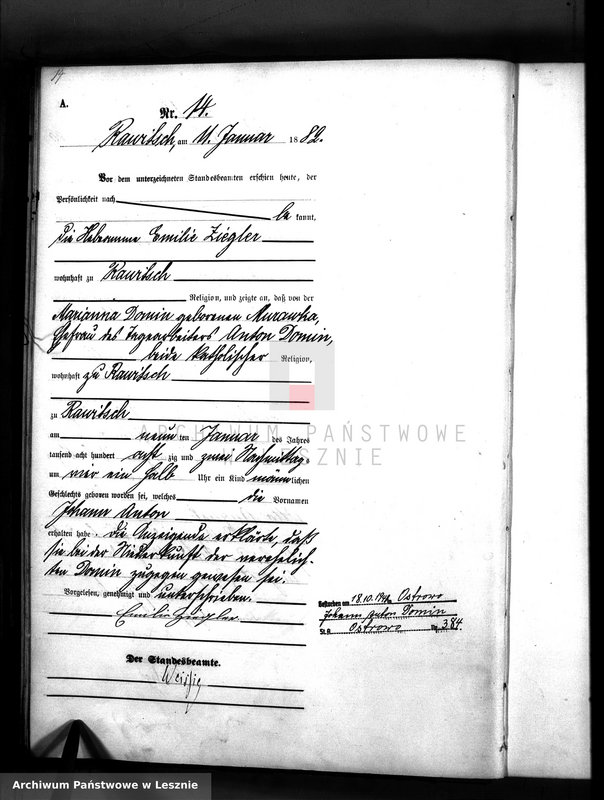 14
A.
Nr. 14.
Rawitsch, am 11. Januar 1882.
Vor dem unterzeichneten Standesbeamten erschien heute, der
Persönlichkeit nach
be kannt,
die Hebamme Emilie Ziegler
wohnhaft zu Rawitsch
Religion, und zeigte an, daß von der
Marianna Domin geborenen Murawka,
Ehefrau des Tagearbeiters Anton Domin,
beide katholischer Religion,
wohnhaft zu Rawitsch
zu Rawitsch
am neun ten Januar des Jahres
tausend acht hundert acht zig und zwei Nachmittag-
um vier ein halb Uhr ein Kind männlichen
Geschlechts geboren worden sei, welches die Vornamen
Johann Anton
erhalten habe. Die Anzeigende erklärte, daß
sie bei der Niederkunft der verehelich-
ten Domin zugegen gewesen sei.
Vorgelesen, genehmigt und unterschrieben.
Emilie Ziegler.
Der Standesbeamte.
Weißig
Gestorben am 18.10. Ostrowo
Johann Anton Domin
St.A. Ostrowo Nr. 384
ARCHIWUM PAŃSTWOWE
W LESZNIE
Archiwum Państwowe w Lesznie